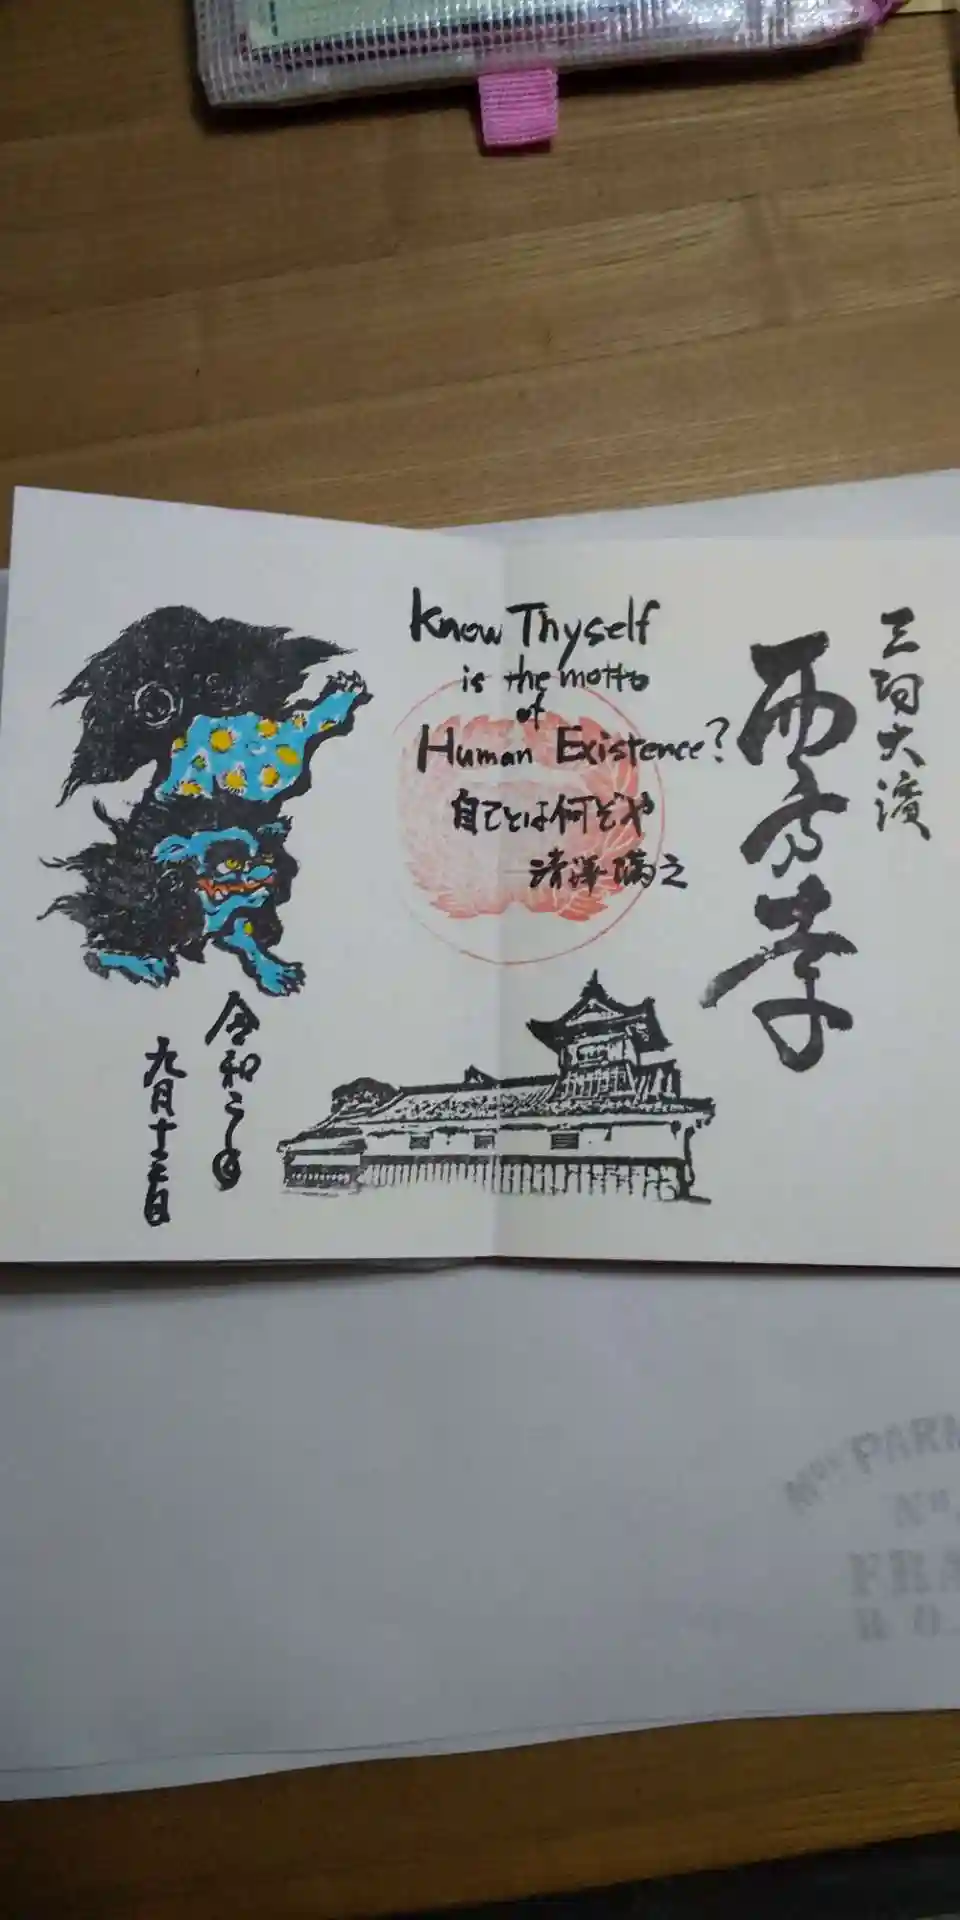 三河大濱
西方寺
Know Thyself
is the motto
of
Human Existence?
自己とは何ぞや
清澤満之
令和二年
九月十三日